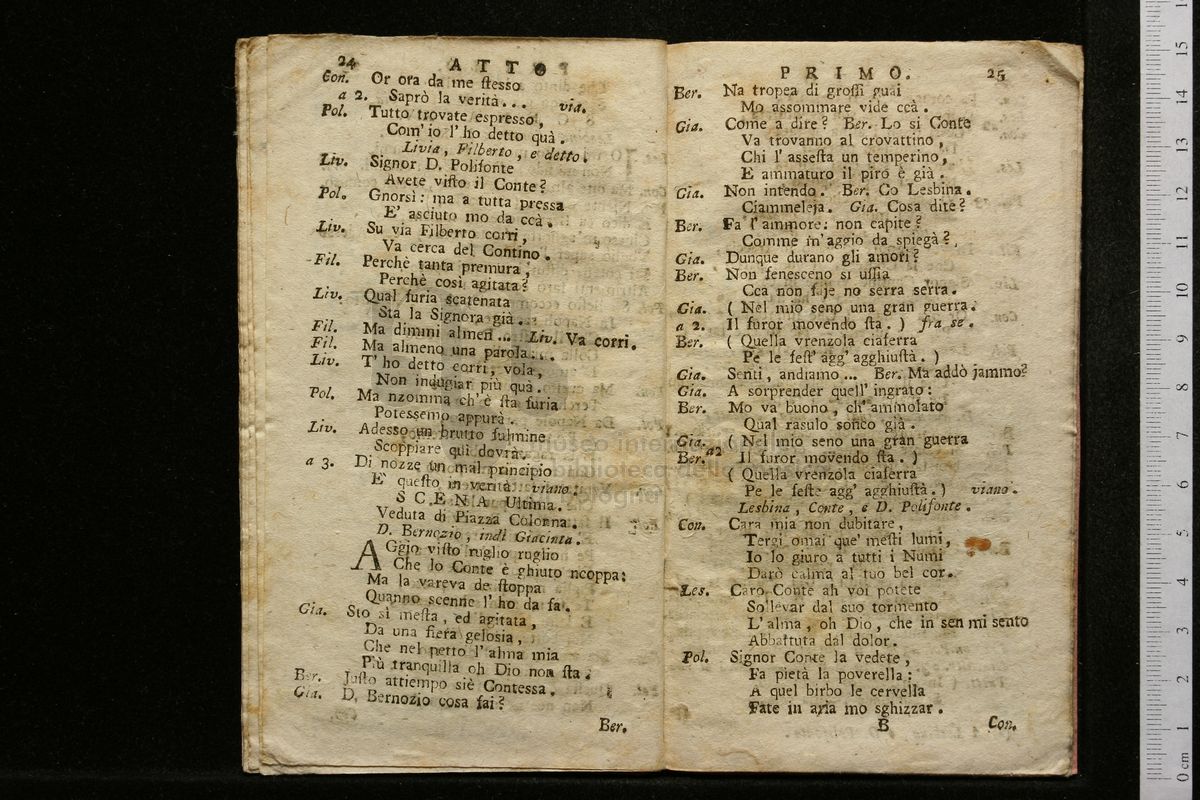 24 ATTO
Con. Or ora da me ſteſſo
a 2. Saprò la verità... via.
Pol. Tutto trovate eſpreſſo,
Com' io l' ho detto quà.
Livia, Filberto, e detto.
Liv. Signor D. Polifonte
Avete viſto il Conte?
Pol. Gnorsì: ma a tutta preſſa
E' aſciuto mo da ccà.
Liv. Su via Filberto corri,
Va cerca del Contino.
Fil. Perchè tanta premura,
Perchè così agitata?
Liv. Qual furia ſcatenata
Sta la Signora già.
Fil. Ma dimmi almen ... Liv. Va corri.
Fil. Ma almeno una parola...
Liv. T' ho detto corri, vola,
Non indugiar più quà.
Pol. Ma nzomma ch' è ſta furia
Poteſſemo appurà.
Liv. Adeſſo un brutto fulmine
Scoppiare quì dovrà.
a 3. Di nozze un mal principio
E' queſto in verità. viano.
SCENA Ultima.
Veduta di Piazza Colonna.
D. Bernozio, indi Giacinta.
AGgio viſto ruglio ruglio
Che lo Conte è ghiuto ncoppa:
Ma la vareva de ſtoppa
Quanno ſcenne l' ho da fa.
Gia. Sto sì meſta, ed agitata,
Da una fiera geloſia,
Che nel petto l' alma mia
Più tranquilla oh Dio non ſta.
Ber. Juſto attiempo siè Conteſſa.
Gia. D. Bernozio coſa fai?
Ber.
PRIMO. 25
Ber. Na tropea di groſſi guai
Mo aſſommare vide ccà.
Gia. Come a dire? Ber. Lo si Conte
Va trovanno al crovattino,
Chi l' aſſeſta un temperino,
E ammaturo il piro è già.
Gia. Non intendo. Ber. Co Lesbina.
Ciammeleja. Gia. Coſa dite?
Ber. Fa l' ammore: non capite?
Comme m' aggio da spiegà?
Gia. Dunque durano gli amori?
Ber. Non feneſceno si uſſia
Cca non faje no ſerra ſerra.
Gia. ( Nel mio ſeno una gran guerra.
a 2. Il furor movendo ſta. ) fra se.
Ber. ( Quella vrenzola ciaferra
Pe le feſt' agg' agghiuſtà. )
Gia. Senti, andiamo ... Ber. Ma addò jammo?
Gia. A ſorprender quell' ingrato:
Ber. Mo va buono, ch' ammolato
Qual raſulo ſonco già.
Gia. ( Nel mio ſeno una gran guerra
Ber. a2 Il furor movendo ſta. )
( Quella vrenzola ciaferra
Pe le feſte agg' agghiuſtà. ) viano.
Lesbina, Conte, e D. Polifonte.
Con. Cara mia non dubitare,
Tergi omai que' meſti lumi,
Io lo giuro a tutti i Numi
Darò calma al tuo bel cor.
Les. Caro Conte ah voi potete
Sollevar dal ſuo tormento
L' alma, oh Dio, che in ſen mi ſento
Abbattuta dal dolor.
Pol. Signor Conte la vedete,
Fa pietà la poverella:
A quel birbo le cervella
Fate in aria mo sghizzar.
B Con.